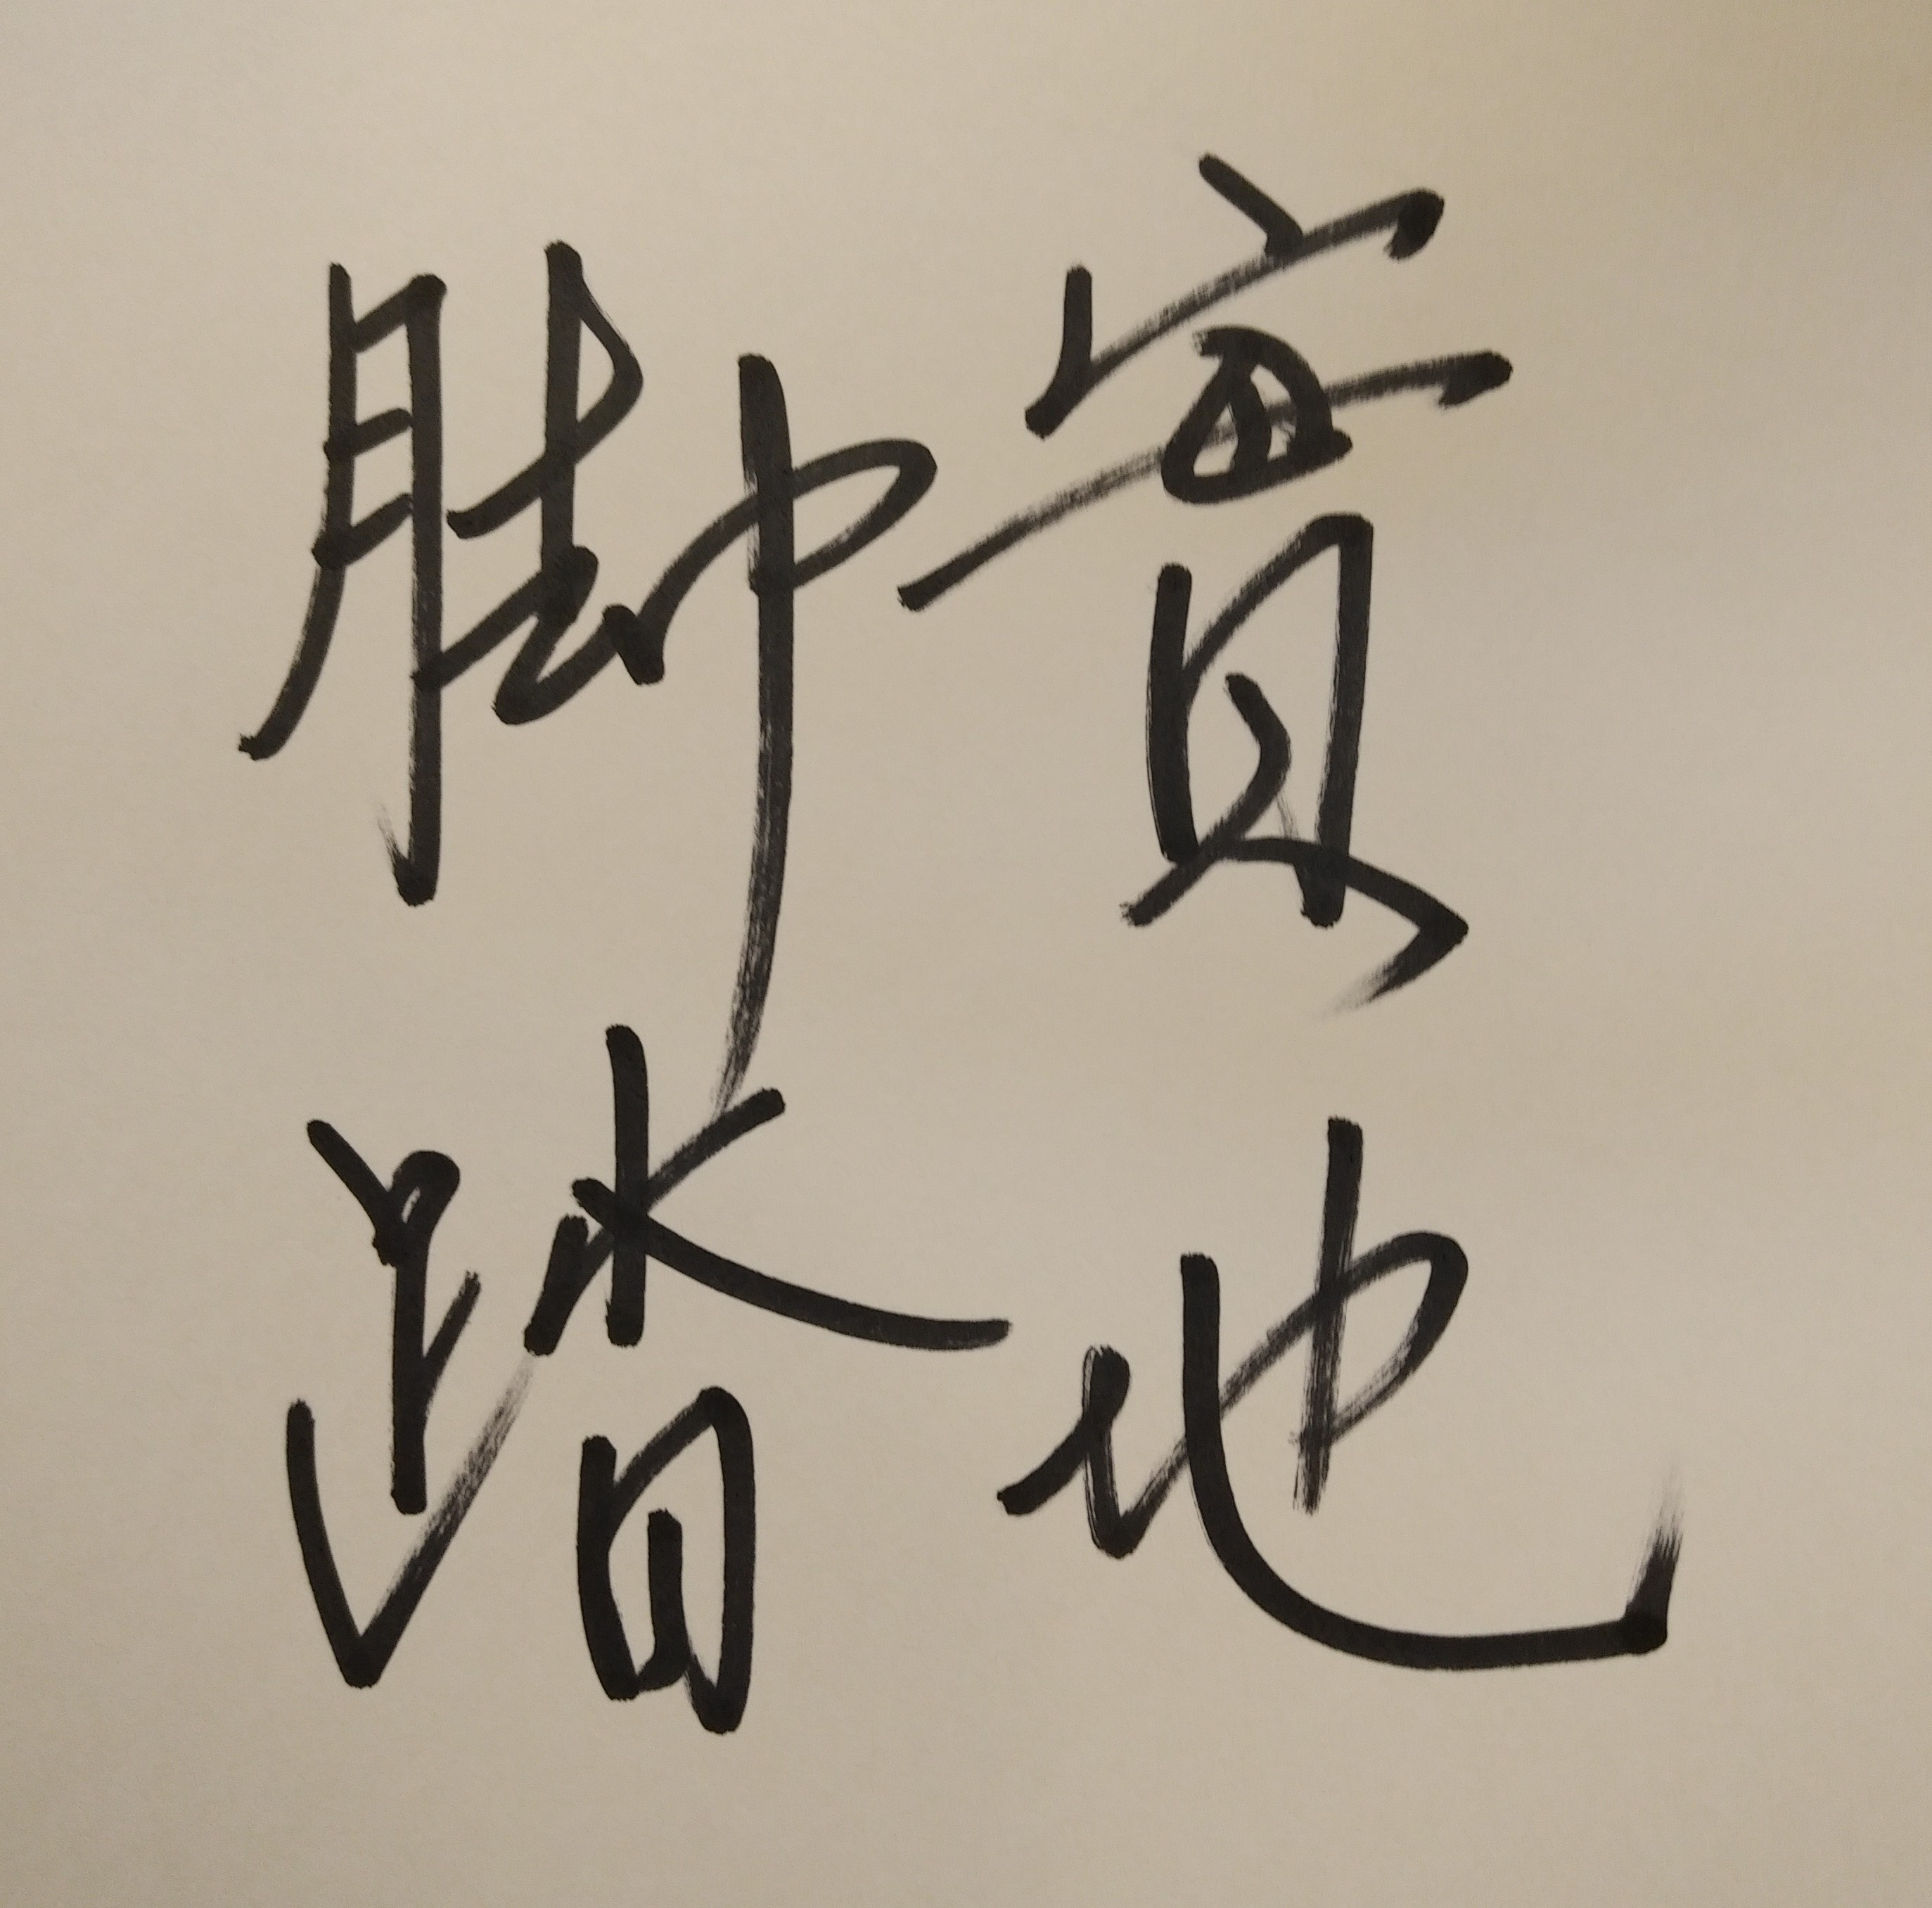 脚踏
實地